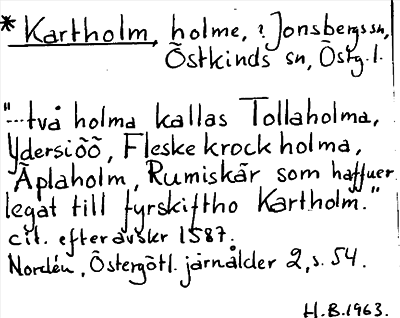 * Kartholm, holme, ? Jonsbergs sn,
Östkinds sn, Östg. l.
"---två holma kallas Tollaholma,
Ydersiöö, Fleskekrockholma,
Äplaholm, Rumiskär som haffuer
legat till fyrskiftho Kartholm."
cit. efter avskr 1587.
Nordén, Östergötl. järnålder 2, s. 54.
H.B. 1963.